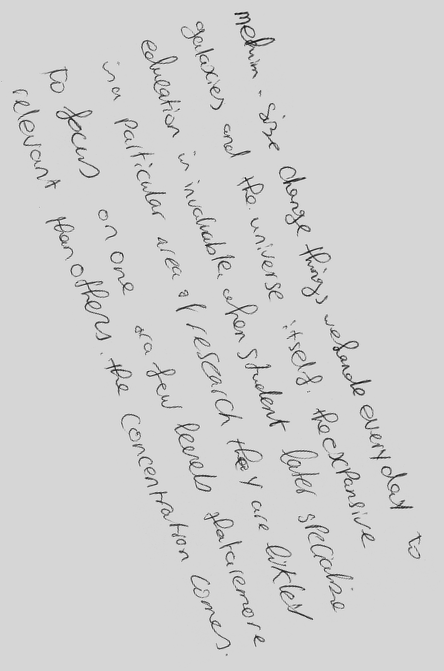 medium-size change things wehande everyday to
galaxies and the universe itself. the expansive
education in invaluable. when student later specialize
in a particular area of research they are likley
to focus on one or a few levels thataremore
relevant than others. the concentration comes.